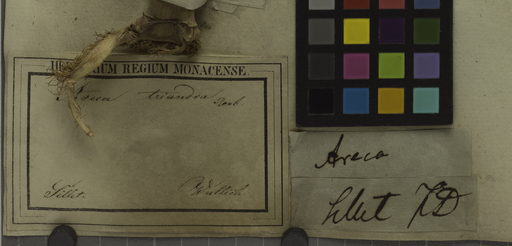 HERBARIUM REGIUM MONACENSE.
Areca triandra Roxb
Sillet. Wallich
Areca
Sillet